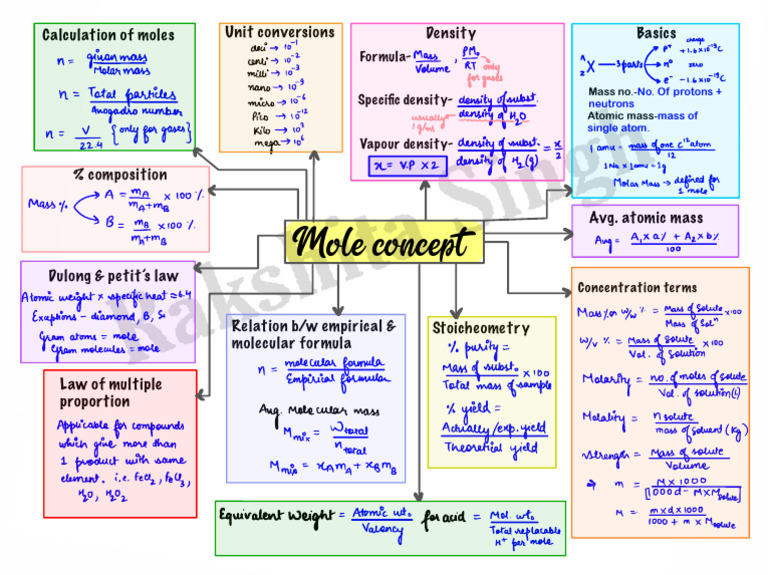 Calculation of moles
n = given mass / Molar mass
n = Total particles / Avogadro number
n = V / 22.4 { only for gases }
Unit conversions
deci → 10⁻¹
centi → 10⁻²
milli → 10⁻³
nano → 10⁻⁹
micro → 10⁻⁶
Pico → 10⁻¹²
Kilo → 10³
mega → 10⁶
Density
Formula- Mass / Volume , PM₀ / RT only for gases
Specific density- density of subst. / density of H₂O
usually 1g/ml
Vapour density- density of subst. / density of H₂(g) = x / 2
x = V.P × 2
Basics
charge
A Z X → 3 parts
P⁺ +1.6×10⁻¹⁹C
n⁰ zero
e⁻ -1.6×10⁻¹⁹C
Mass no.-No. Of protons +
neutrons
Atomic mass-mass of
single atom.
1 amu = mass of one C¹² atom / 12
1 Na × 1amu = 1g
Molar Mass → defined for
1 mole
% composition
Mass %
A = mA / mA+mB × 100 %
B = mB / mA+mB × 100 %
Mole concept
Avg. atomic mass
Avg = A₁×a% + A₂×b% / 100
Dulong & petit's law
Atomic weight × specific heat = 6.4
Exaptions - diamond, B, Si
Gram atoms = mole
Gram molecules = mole
Relation b/w empirical &
molecular formula
n = molecular formula / Empirical formular
Avg. Molecular mass
Mmix = Wtotal / ntotal
Mmix = xAmA + xBmB
Stoicheometry
% purity =
Mass of subst. / Total mass of sample × 100
% yield =
Actually/exp. yield / Theoretial yield
Concentration terms
Mass % or w/w % = Mass of Solute / Mass of Solⁿ × 100
W/v % = Mass of Solute / Vol. of Solution × 100
Molarity = no. of moles of solute / Vol. of solution(L)
Molality = n solute / mass of solvent (Kg)
Strength = Mass of solute / Volume
⇒ m = M × 1000 / [1000d - M×Msolute]
M = m×d×1000 / 1000 + m × Msolute
Law of multiple
proportion
Applicable for compounds
which give more than
1 product with same
element. i.e. FeCl₂, FeCl₃,
H₂O, H₂O₂
Equivalent Weight = Atomic wt. / Valency for acid = Mol. wt. / Total replacable H⁺ per mole
Rakshita Singh